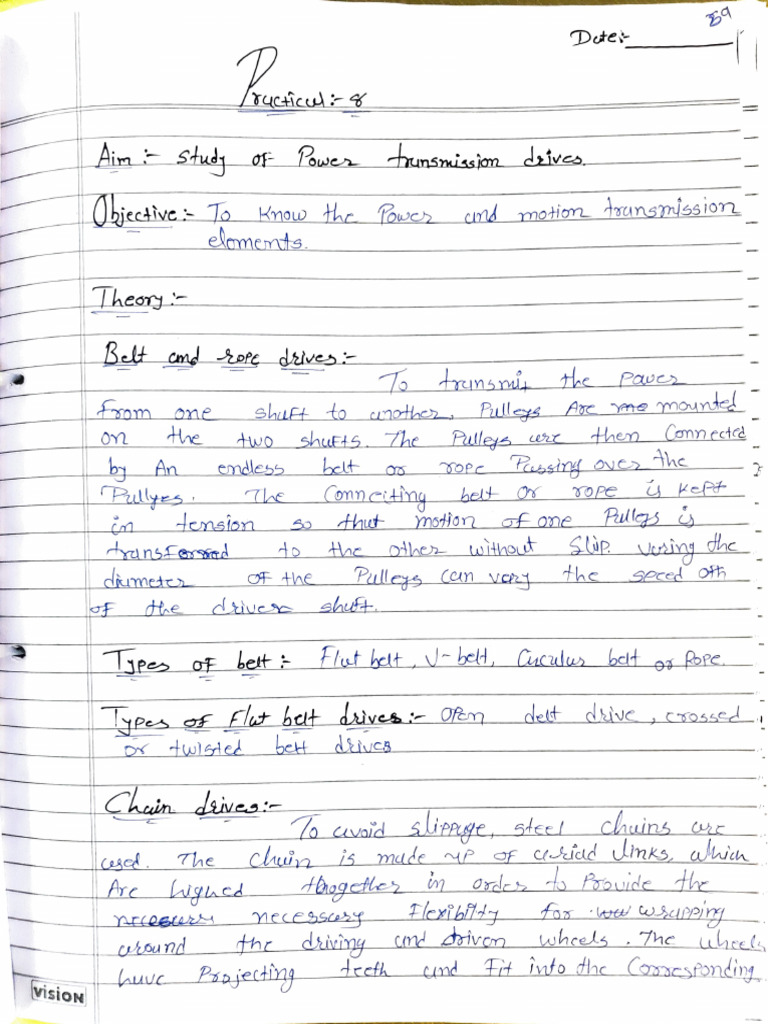 59
Date:-
Practical:- 8
Aim :- Study of Power transmission drives.
Objective:- To Know the Power and motion transmission
elements.
Theory:-
Belt and rope drives:-
To transmit the power
from one shaft to another, Pulleys Are mounted
on the two shafts. The Pulleys are then Connected
by An endless belt or rope Passing over the
Pullyes. The Conneiting belt or rope is kept
in tension so that motion of one Pulleys is
to the other without Slip. varing the
diameter of the Pulleys can vary the speed oth
of the driver shaft.
Types of belt :- Flat belt, V-belt, belt or Rope.
Types of Flat belt drives:- Open delt drive, crossed
or twisted belt drives
Chain drives:-
To avoid slippage, steel chains are
used. The Chain is made up of links, which
Are higned thogether in order to Provide the
necessary Flexibility for wrapping
around the driving and driven wheels. The wheels
have Projecting teeth and Fit into the Corresponding
VISION